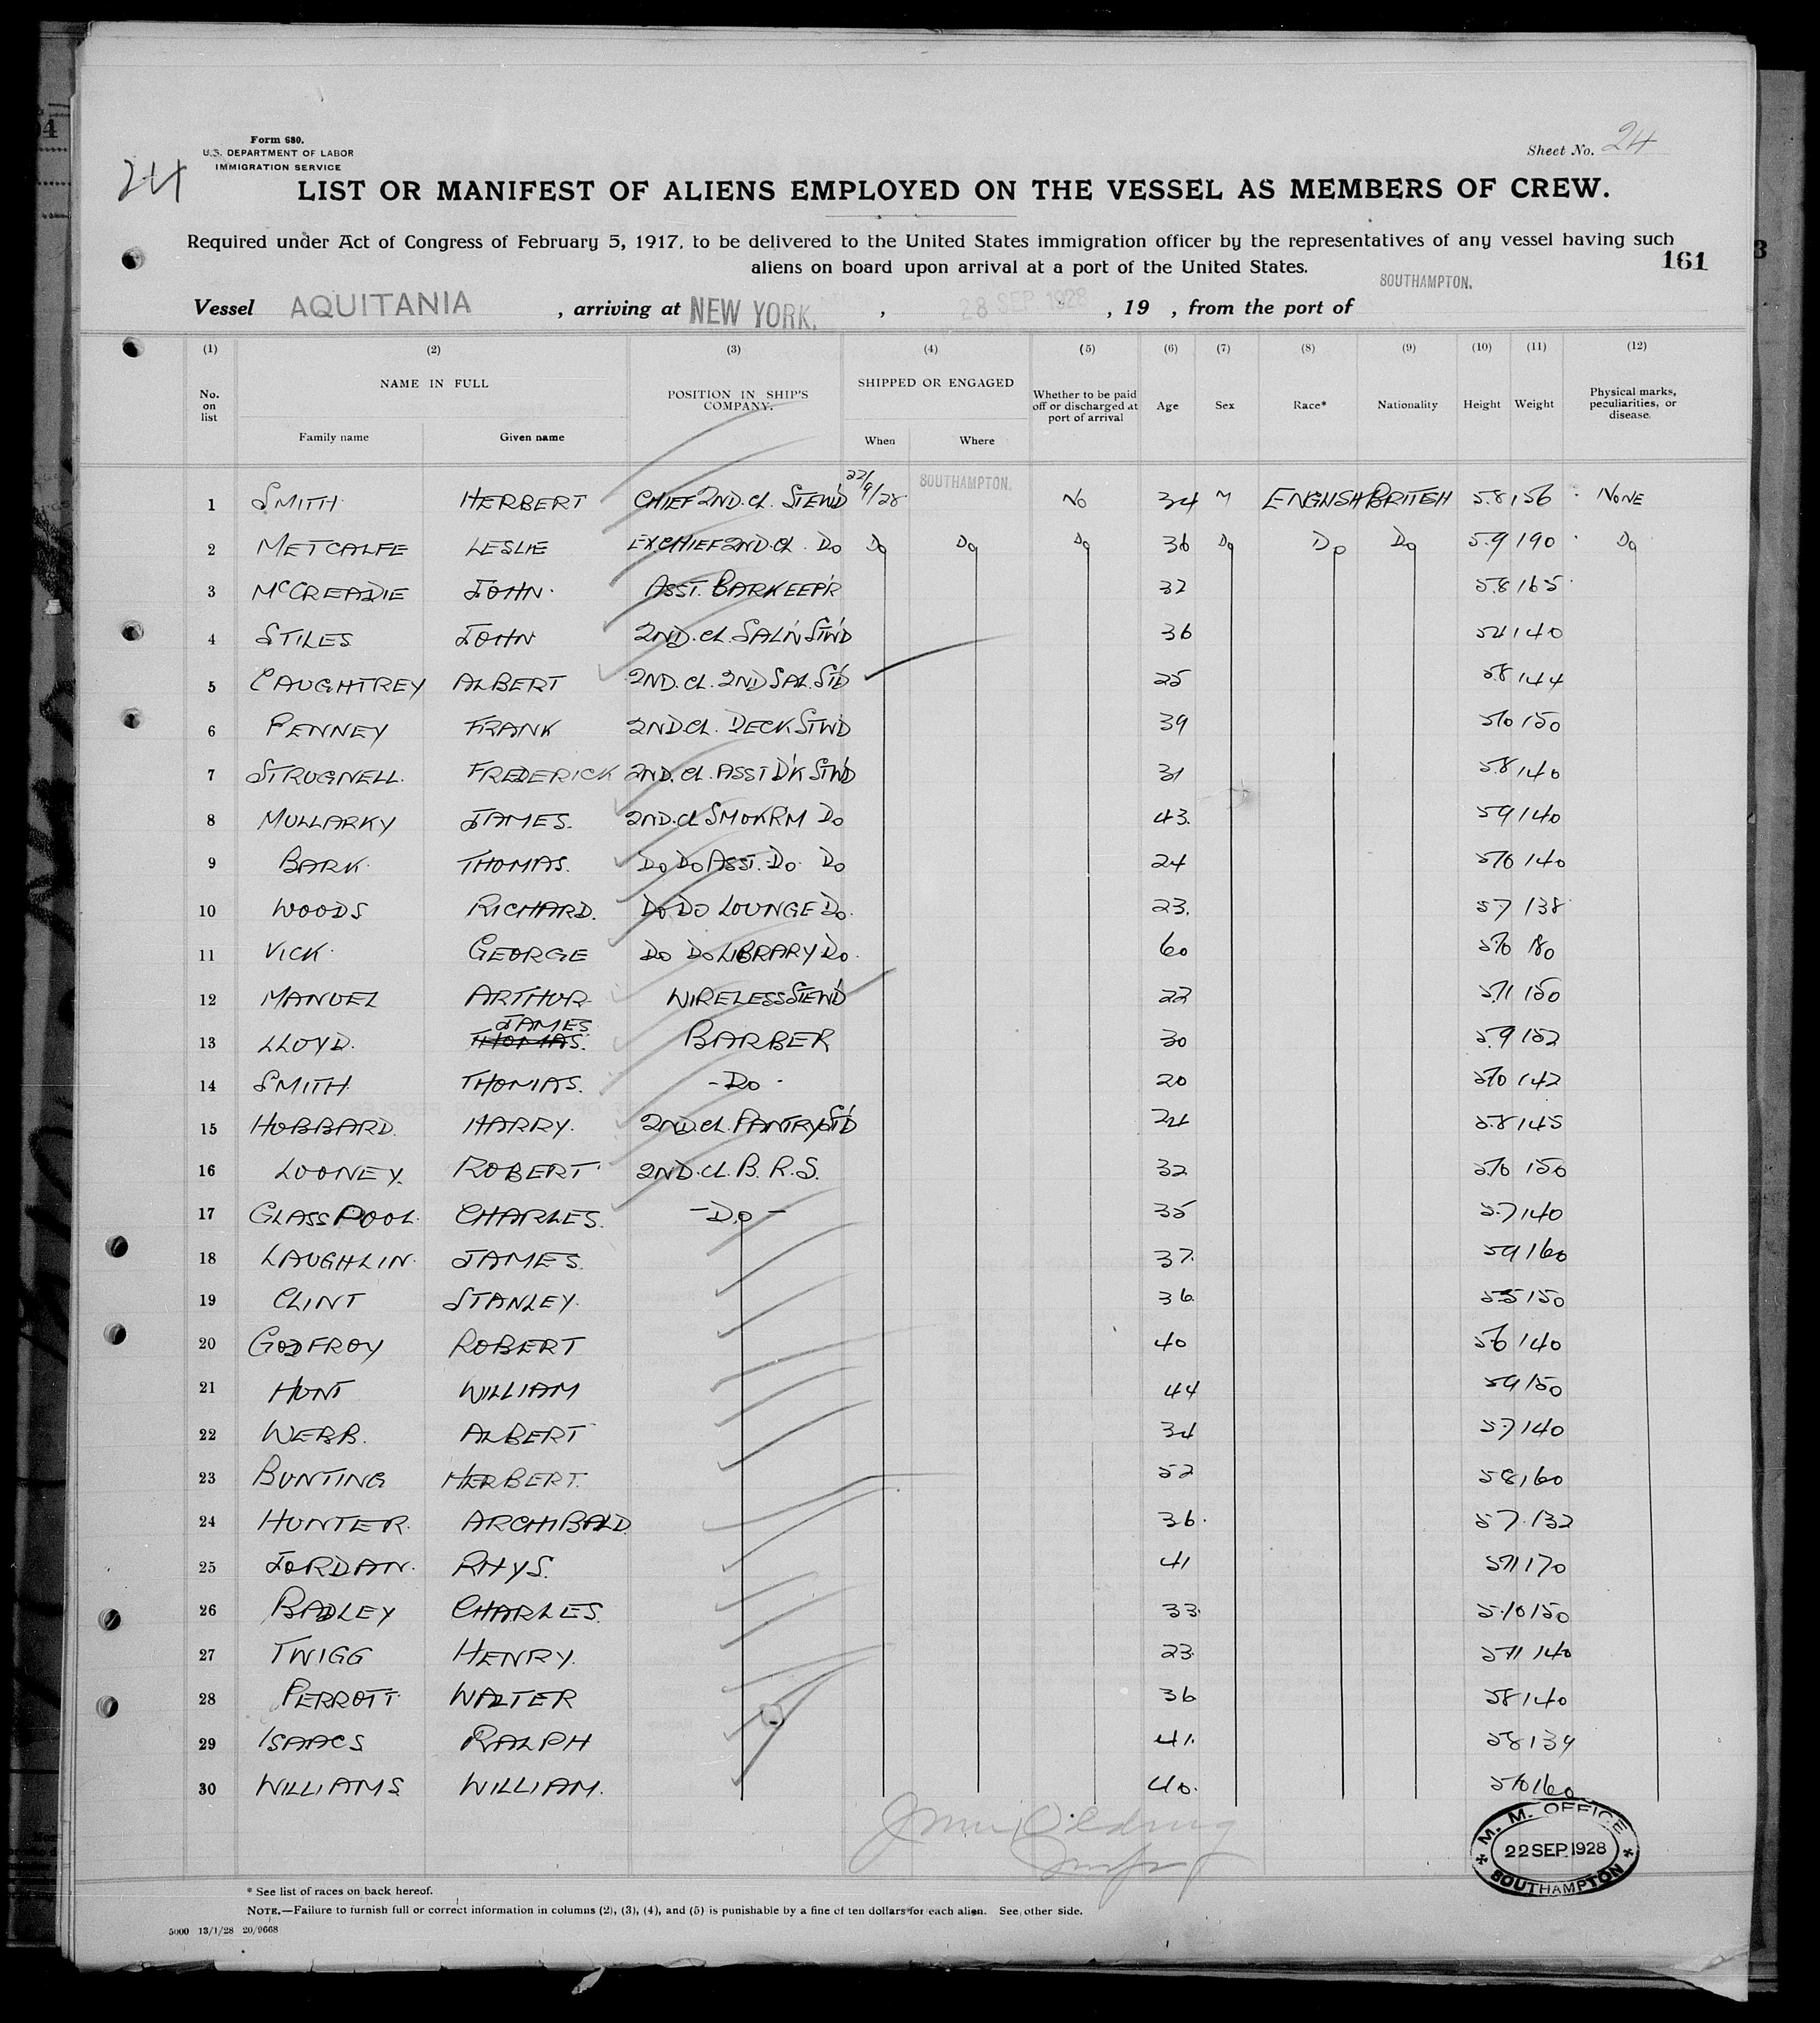 Form 680.
U.S. DEPARTMENT OF LABOR
IMMIGRATION SERVICE
24
Sheet No. 24
LIST OR MANIFEST OF ALIENS EMPLOYED ON THE VESSEL AS MEMBERS OF CREW.
Required under Act of Congress of February 5, 1917, to be delivered to the United States immigration officer by the representatives of any vessel having such
aliens on board upon arrival at a port of the United States.
161
SOUTHAMPTON.
Vessel AQUITANIA , arriving at NEW YORK. , 28 SEP 1928 , 19 , from the port of
(1) (2) (3) (4) (5) (6) (7) (8) (9) (10) (11) (12)
No. on list NAME IN FULL Family name Given name POSITION IN SHIP'S COMPANY. SHIPPED OR ENGAGED When Where Whether to be paid off or discharged at port of arrival Age Sex Race* Nationality Height Weight Physical marks, peculiarities, or disease.
1 SMITH HERBERT CHIEF 2ND. CL. STEW'D 22/9/28 SOUTHAMPTON. NO 34 M ENGLISH BRITISH 5.8 156 NONE
2 METCALFE LESLIE EX CHIEF 2ND. CL. DO DO DO DO 36 DO DO DO 5.9 190 DO
3 McCREADIE JOHN. ASST. BARKEEP'R 32 5.8 165
4 STILES JOHN 2ND. CL. SAL'N ST'W'D 36 54 140
5 CAUGHTREY ALBERT 2ND. CL. 2ND SAL. ST'D 25 5.8 144
6 PENNEY FRANK 2ND CL. DECK STW'D 39 5/10 150
7 STRUGNELL. FREDERICK 2ND. CL. ASST D'K STW'D 31 5.8 140
8 MULLARKY JAMES. 2ND. CL SMOK RM DO 43. 59 140
9 BARK. THOMAS. DO DO ASST. DO. DO 24 5/10 140
10 WOODS RICHARD. DO DO LOUNGE DO. 23. 57 138
11 VICK. GEORGE DO DO LIBRARY DO. 60 5/10 180
12 MANUEL ARTHUR WIRELESS STEW'D 22 5/11 150
13 LLOYD. JAMES THOMAS. BARBER 30 5.9 152
14 SMITH THOMAS. - DO - 20 5/10 142
15 HUBBARD. HARRY. 2ND. CL. PANTRY ST'D 24 5.8 145
16 LOONEY. ROBERT 2ND. CL. B. R. S. 32 5/10 150
17 GLASSPOOL. CHARLES. - DO - 35 5.7 140
18 LAUGHLIN. JAMES. 37. 59 160
19 CLINT STANLEY. 36. 5.5 150
20 GODFROY ROBERT 40 56 140
21 HUNT WILLIAM 44 59 150
22 WEBB. ALBERT 34 57 140
23 BUNTING HERBERT. 52 58 160
24 HUNTER. ARCHIBALD. 36. 57. 132
25 JORDAN. RHYS. 41 5/11 170
26 BADLEY CHARLES. 33. 5.10 150
27 TWIGG HENRY. 23. 5/11 140
28 PERROTT. WALTER 36 58 140
29 ISAACS RALPH 41. 58 139
30 WILLIAMS WILLIAM. 40. 5/10 160
M. M. OFFICE
22 SEP. 1928
SOUTHAMPTON
* See list of races on back hereof.
NOTE.—Failure to furnish full or correct information in columns (2), (3), (4), and (5) is punishable by a fine of ten dollars for each alien. See other side.
5000 13/1/28 20/9668